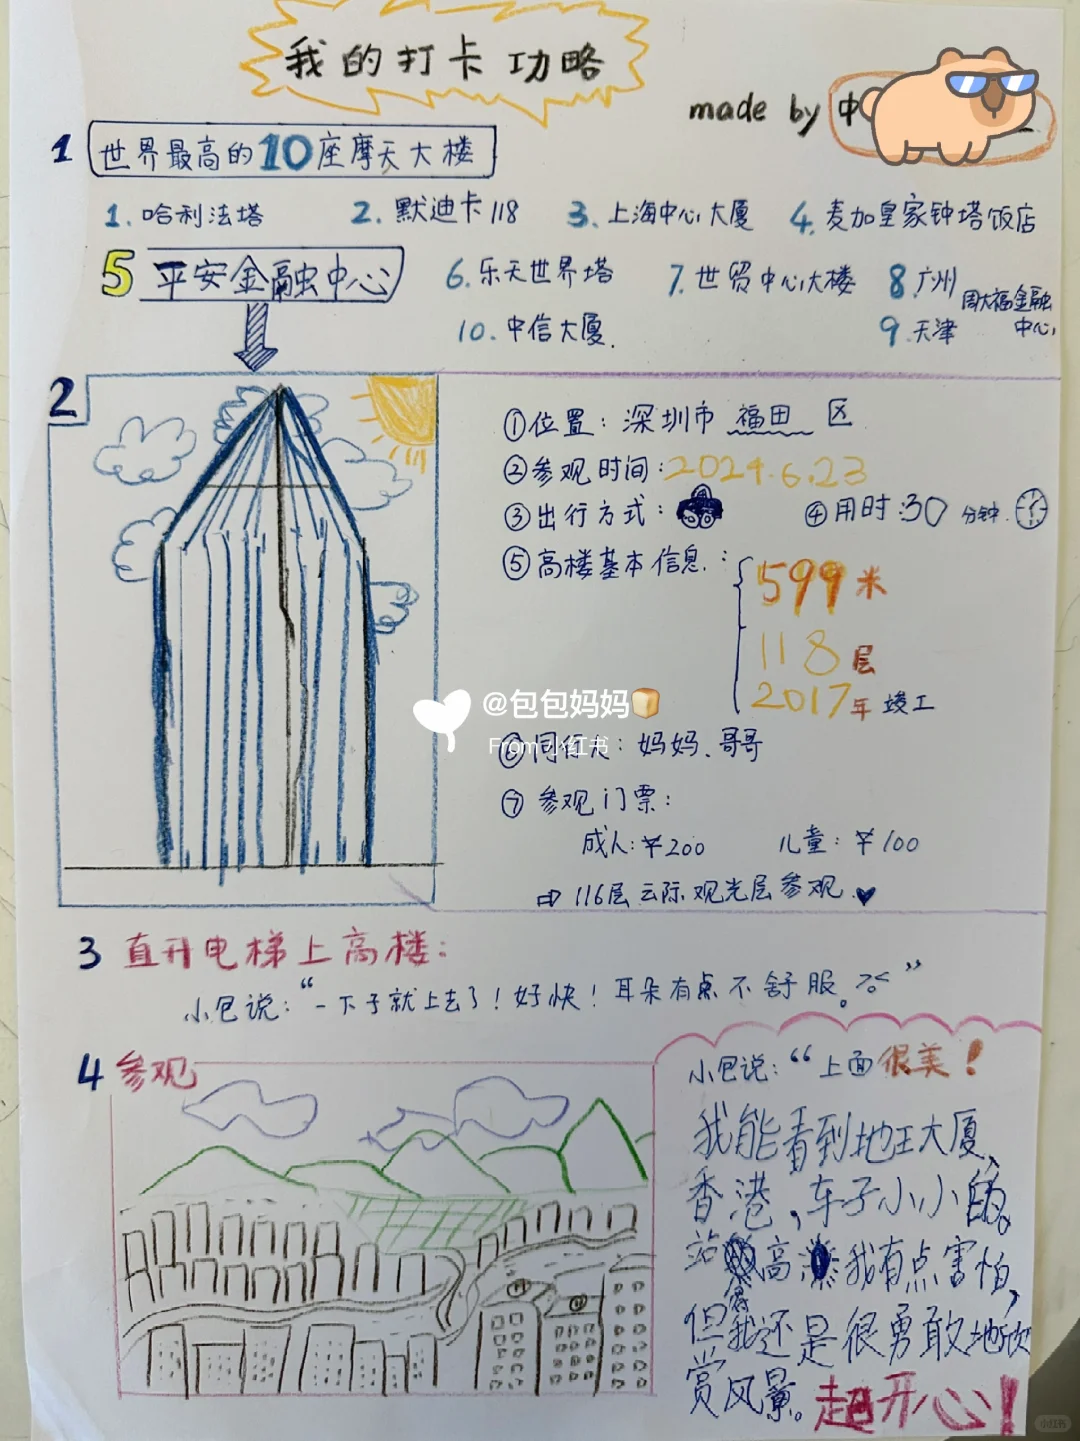 我的打卡功略
made by 中
1 世界最高的10座摩天大楼
1. 哈利法塔 2. 默迪卡118 3. 上海中心大厦 4. 麦加皇家钟塔饭店
5 平安金融中心 6. 乐天世界塔 7. 世贸中心大楼 8. 广州 周大福金融中心
10. 中信大厦. 9. 天津
2
①位置：深圳市 福田 区
②参观时间：2024.6.23
③出行方式： ④用时:30 分钟.
⑤高楼基本信息：
599米
118层
2017年 竣工
@包包妈妈
From 小红书
⑥同行人：妈妈、哥哥
⑦ 参观门票：
成人:￥200 儿童：￥100
⇨ 116层云际观光层参观
3 直升电梯上高楼：
小包说：“一下子就上去了！好快！耳朵有点不舒服。”
4 参观
小包说：“上面很美！
我能看到地王大厦、
香港，车子小小的。
站 高 我有点害怕，
但我还是很勇敢地欣
赏风景。超开心！
小红书